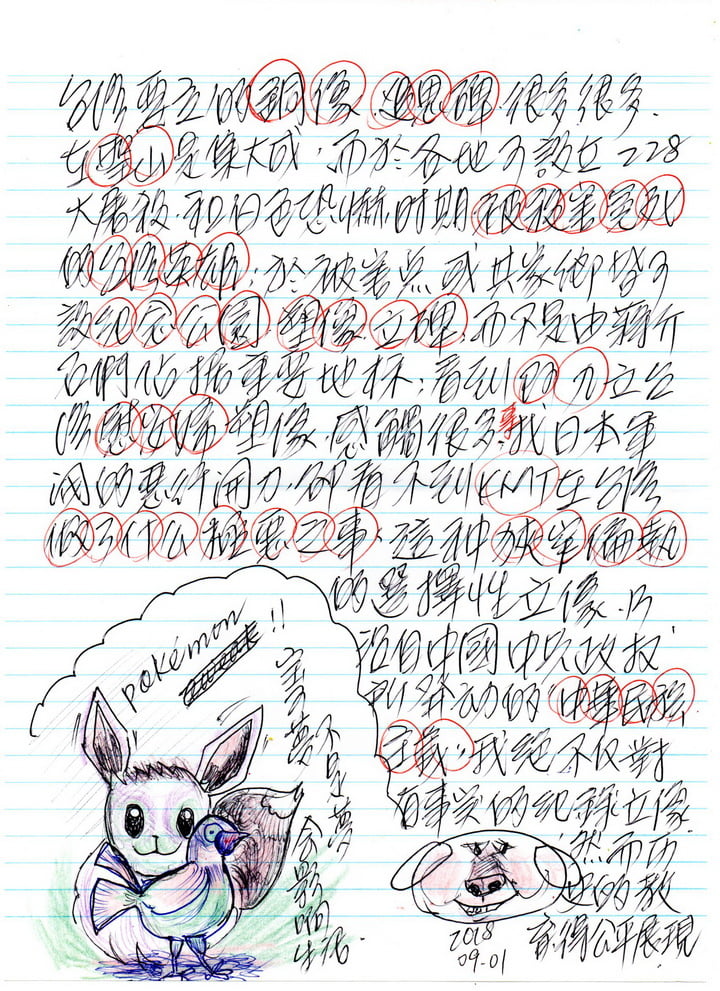 台灣要立的銅像.追思碑.很多很多.
在聖山是集大成,而於各地可設立228
大屠殺.和白色恐怖時期.被殺害冤死
的台灣英雄;於被害点或其家鄉皆可
設紀念公園.塑像立碑.而不是由蔣介
石們佔據重要地標;看到 立台
灣慰安婦塑像.感觸很多.找日本軍
閥的惡 開刀.卻看不到KMT在台灣
做了什么極惡之事.這種狹窄偏執
的選擇性立像.乃
沿自中國中央政权
所發动的"中華民族
主義";我絕不反對
有事实的紀錄立像.
然而历
史的教
育得公平展現
pokémon !!
宝可夢不是夢
會影响生活.
2018
09.01